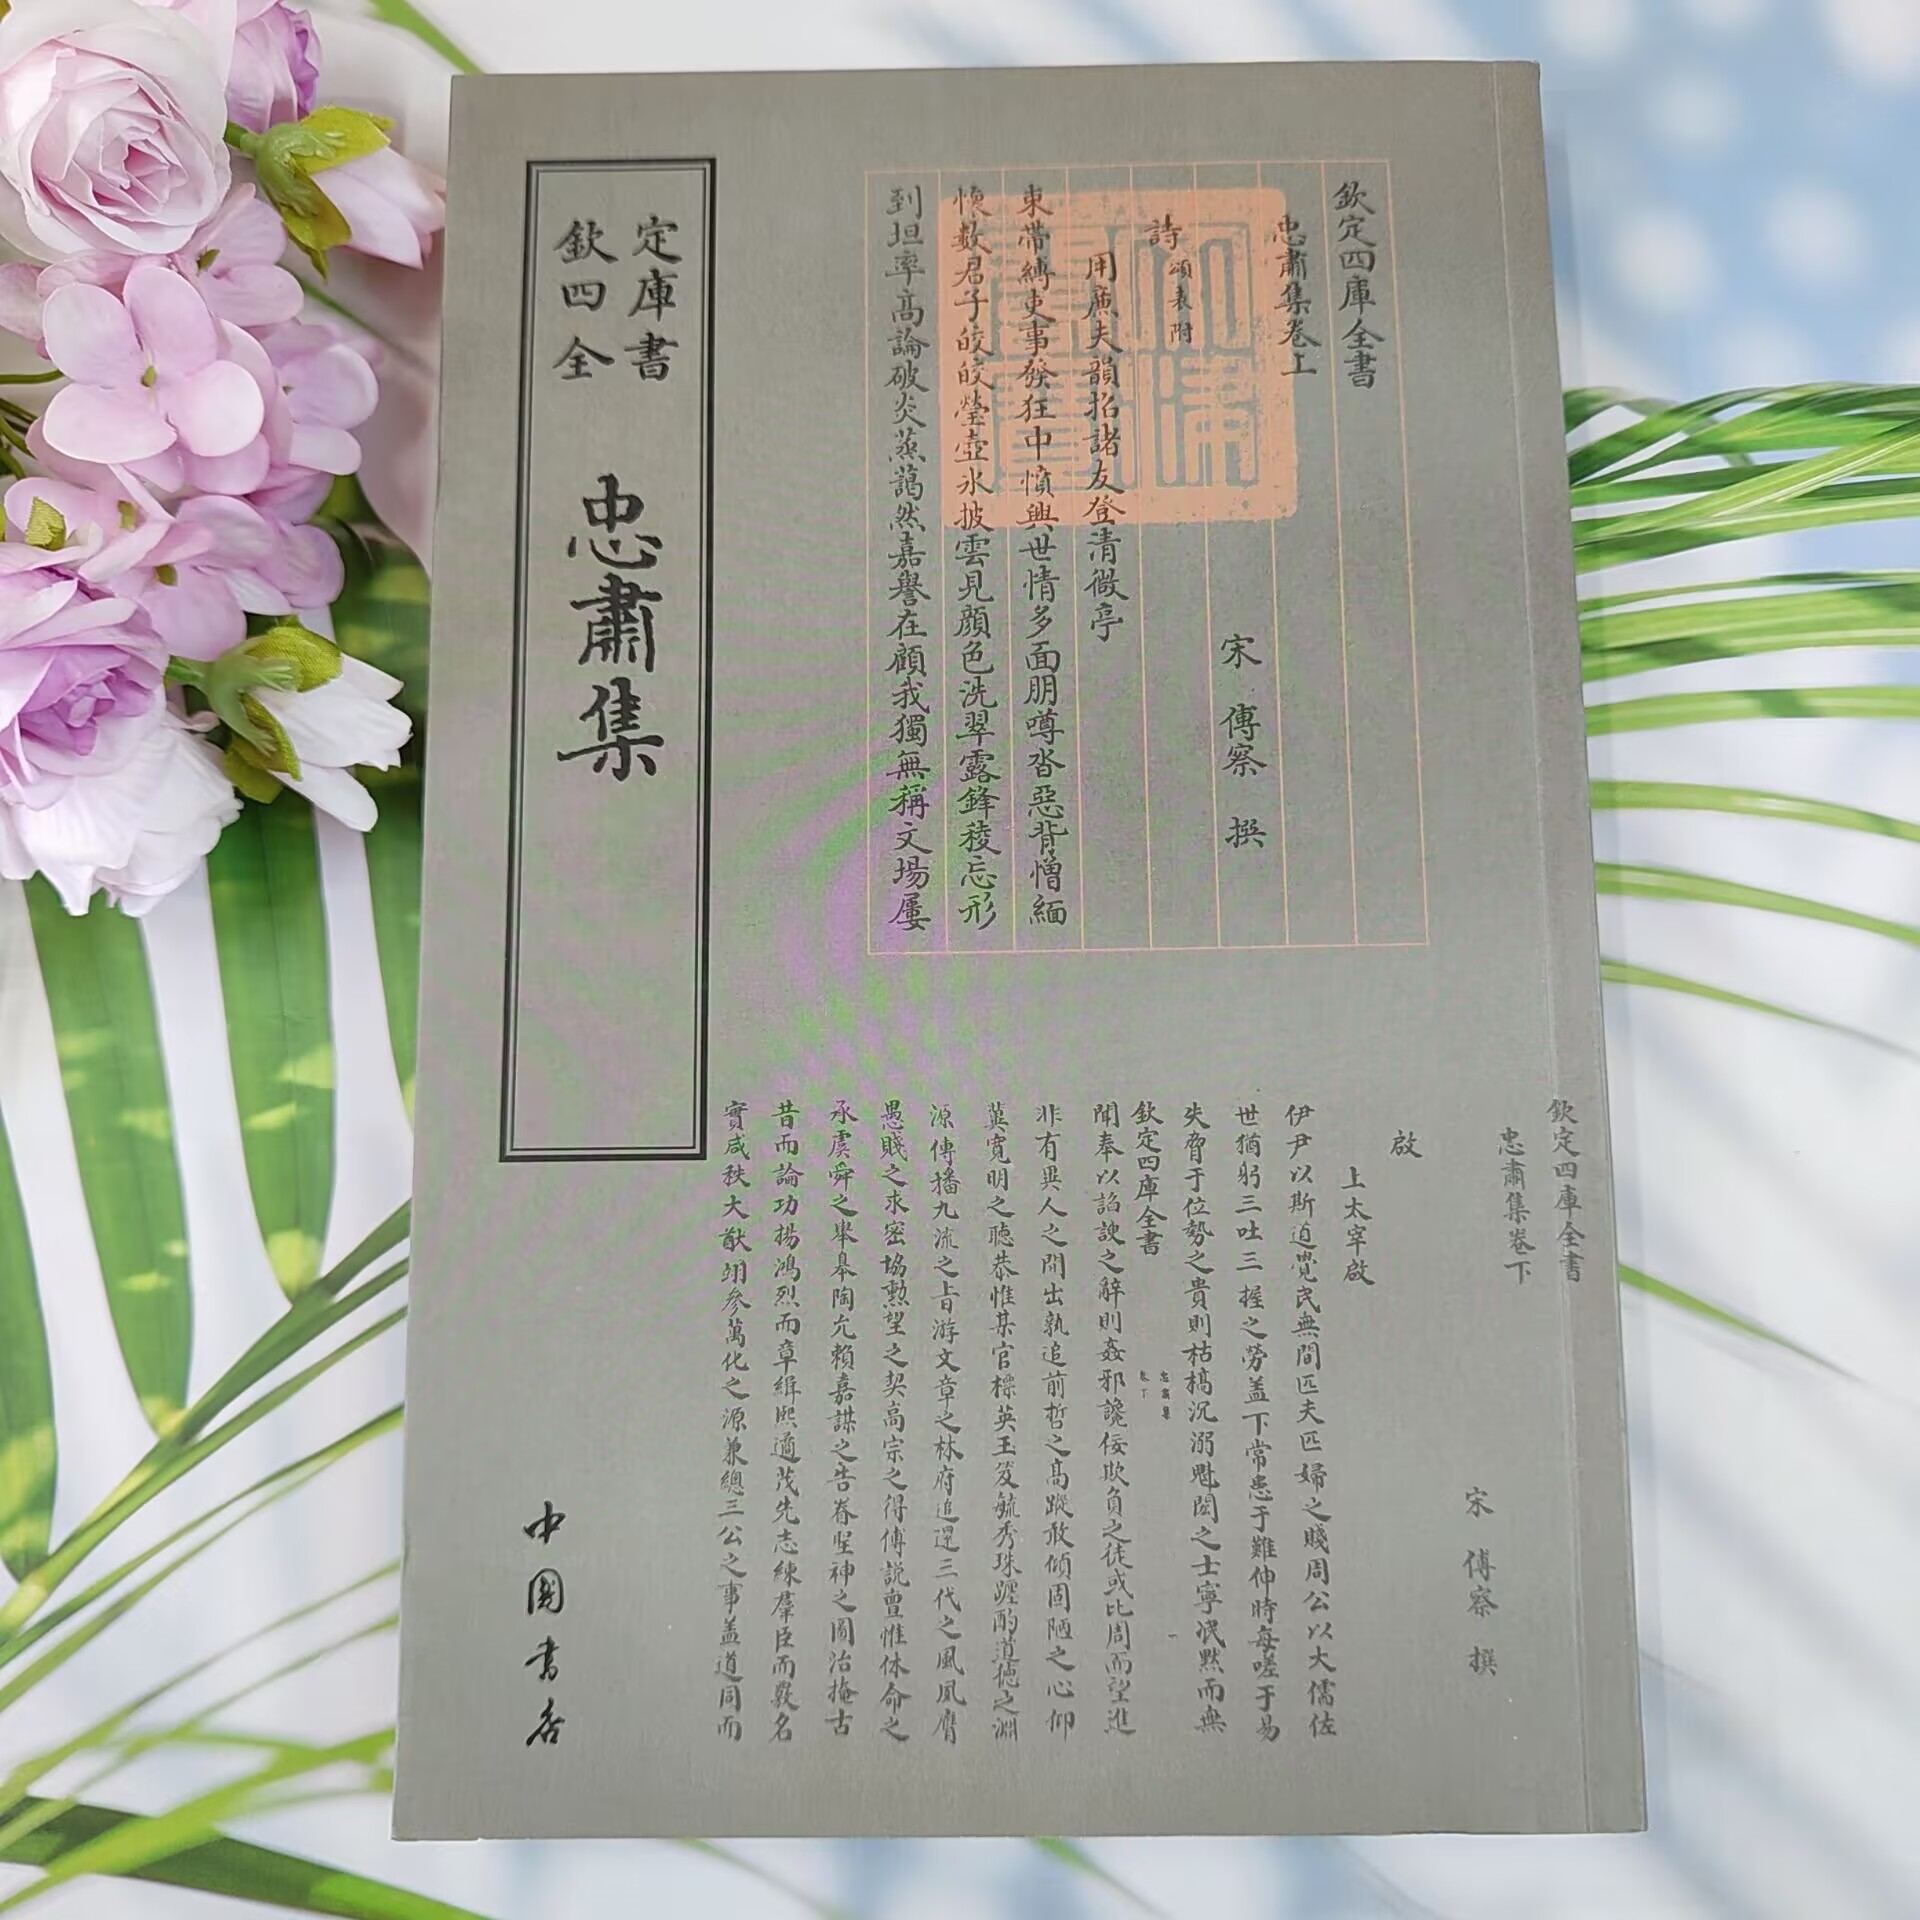 欽定四庫全書
忠肅集
中國書店
欽定四庫全書
忠肅集卷上
宋 傅察 撰
詩
頌表附
用廉夫韻招諸友登清微亭
束帶縛吏事發狂中憤與世情多面朋噂沓惡背憎緬
懐數君子皎皎瑩壺氷披雲見顔色洗翠露鋒稜忘形
到坦率髙論破炎蒸藹然嘉譽在顧我獨無稱文塲屢
欽定四庫全書
忠肅集卷下
宋 傅察 撰
啟
上太宰啟
伊尹以斯道覺民無間匹夫匹婦之賤周公以大儒佐
世猶躬三吐三握之勞盖下常患于難伸時每嗟于易
失脅于位勢之貴則枯槁沉溺魁閎之士寧泯黙而無
欽定四庫全書
忠肅集
卷下
一
聞奉以諂諛之辭則姦邪讒佞欺負之徒或比周而望進
非有異人之間出孰追前哲之髙蹤敢傾固陋之心仰
冀寛明之聽恭惟某官標英玉笈毓秀珠躔酌道徳之淵
源傳播九流之㫖游文章之林府追還三代之風夙膺
愚賤之求密協勲望之契高宗之得傅説亶惟休命之
承虞舜之舉皋陶允賴嘉謀之告眷聖神之圖治掩古
昔而論功揚鴻烈而章緝熙遹茂先志練羣臣而覈名
實咸秩大猷翊參萬化之源兼總三公之事盖道同而